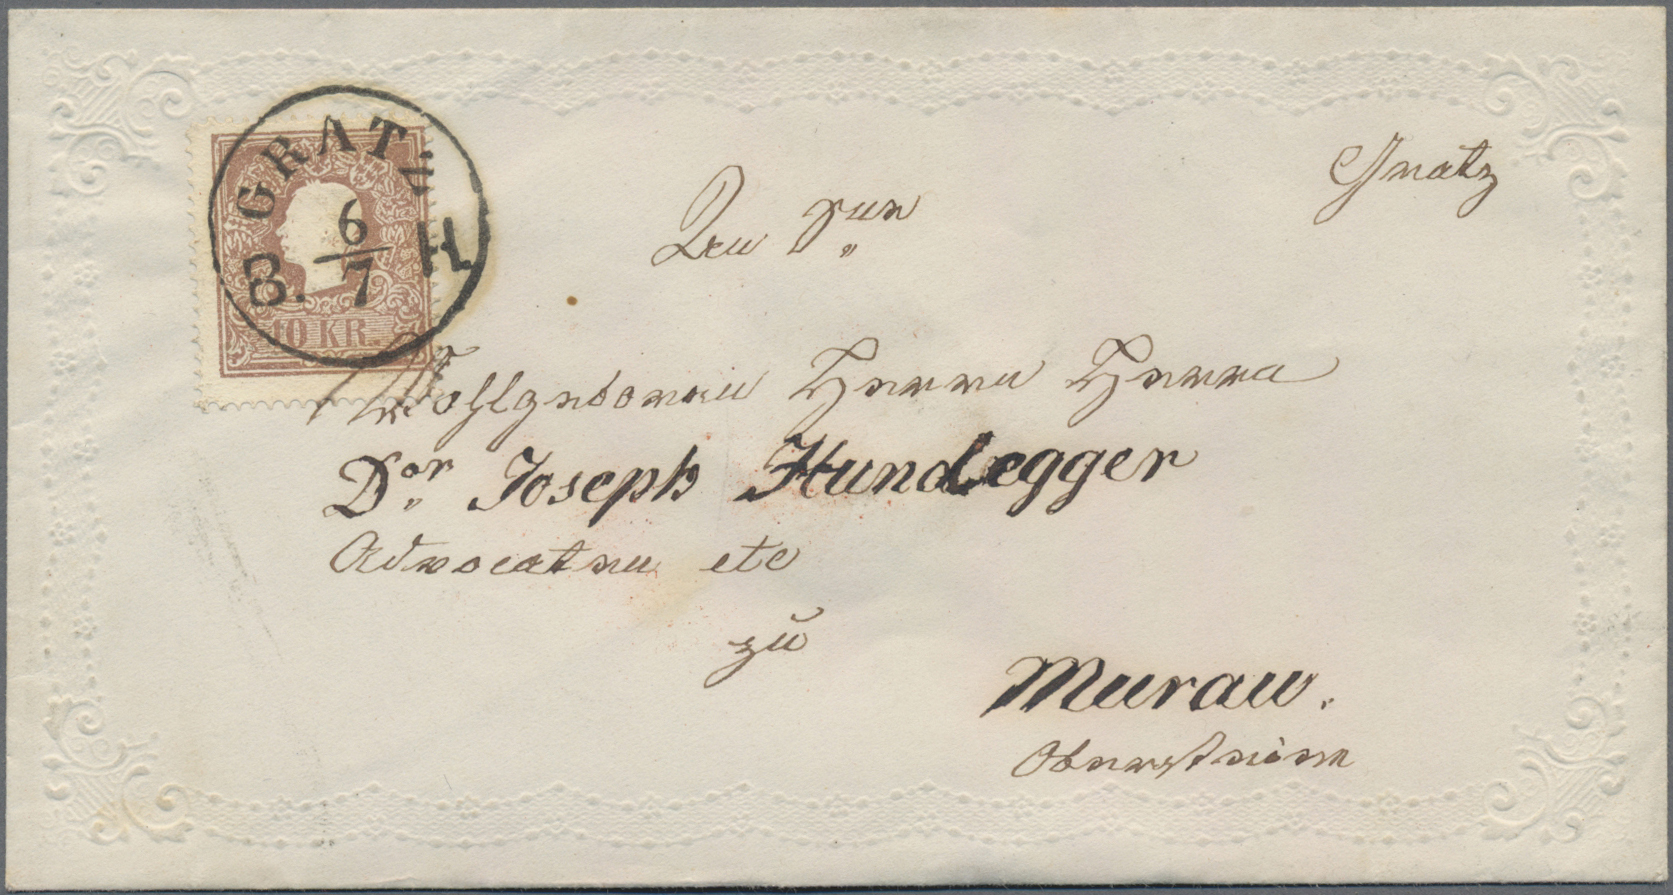 GRATZ
B. H
6
7
10 KR.
Gratz
Wohlgebornen Herrn Herrn
Dor. Joseph Hundegger
Advocaten etc
zu
Murau.
Obersteier